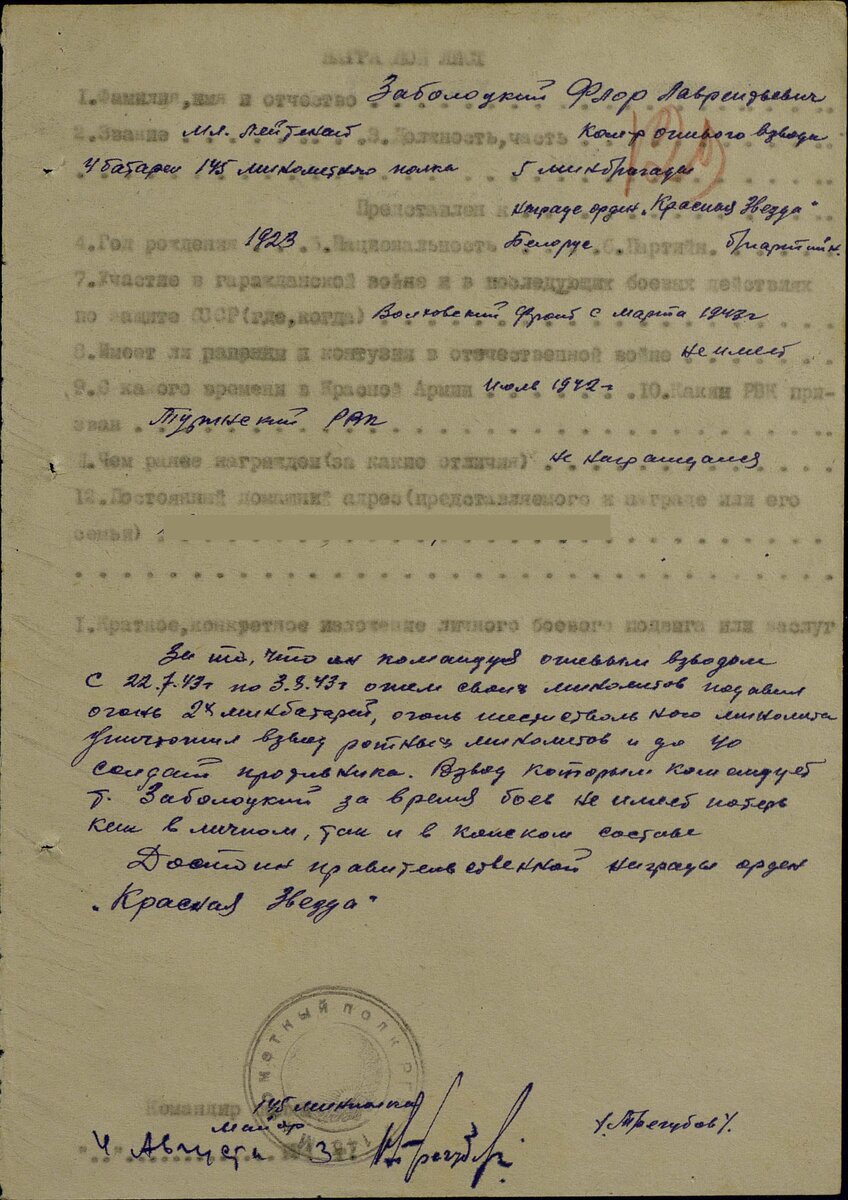 НАГРАДНОЙ ЛИСТ
1.Фамилия,имя и отчество Заболоцкий Флор Лаврентьевич
2.Звание Мл. лейтенант 3.Должность,часть Ком-р огневого взвода
4 батареи 145 минометного полка 5 минбригады
Представлен к
награде орден „Красная Звезда"
4.Год рождения 1923 5.Национальность Белорус 6.Партийн.
7.Участие в гаражданской войне и в последующих боевых действиях
по защите СССР(где,когда) Волховский фронт с марта 1943г
8.Имеет ли ранения и контузии в отечественной войне не имеет
9.С какого времени в Красной Армии Июль 1942г 10.Каким РВК при-
зван РВК
11.Чем ранее награжден(за какие отличия) не награждался
12.Постоянный домашний адрес(представляемого к награде или его
семьи)
I.Краткое,конкретное изложение личного боевого подвига или заслуг
За то, что он командуя огневым взводом
с 22.7.43г по 3.8.43г огнем своих минометов подавил
огонь 2х минбатарей, огонь шестиствольного миномета
уничтожил взвод ротных минометов и до 40
солдат противника. Взвод которым командует
т. Заболоцкий за время боев не имеет потерь
как в личном, так и в конском составе
Достоин правительственной награды орден
„Красная Звезда"
МИНОМЕТНЫЙ ПОЛК
Командир 145 минполка
майор /Трегубов/.
4 Августа 3